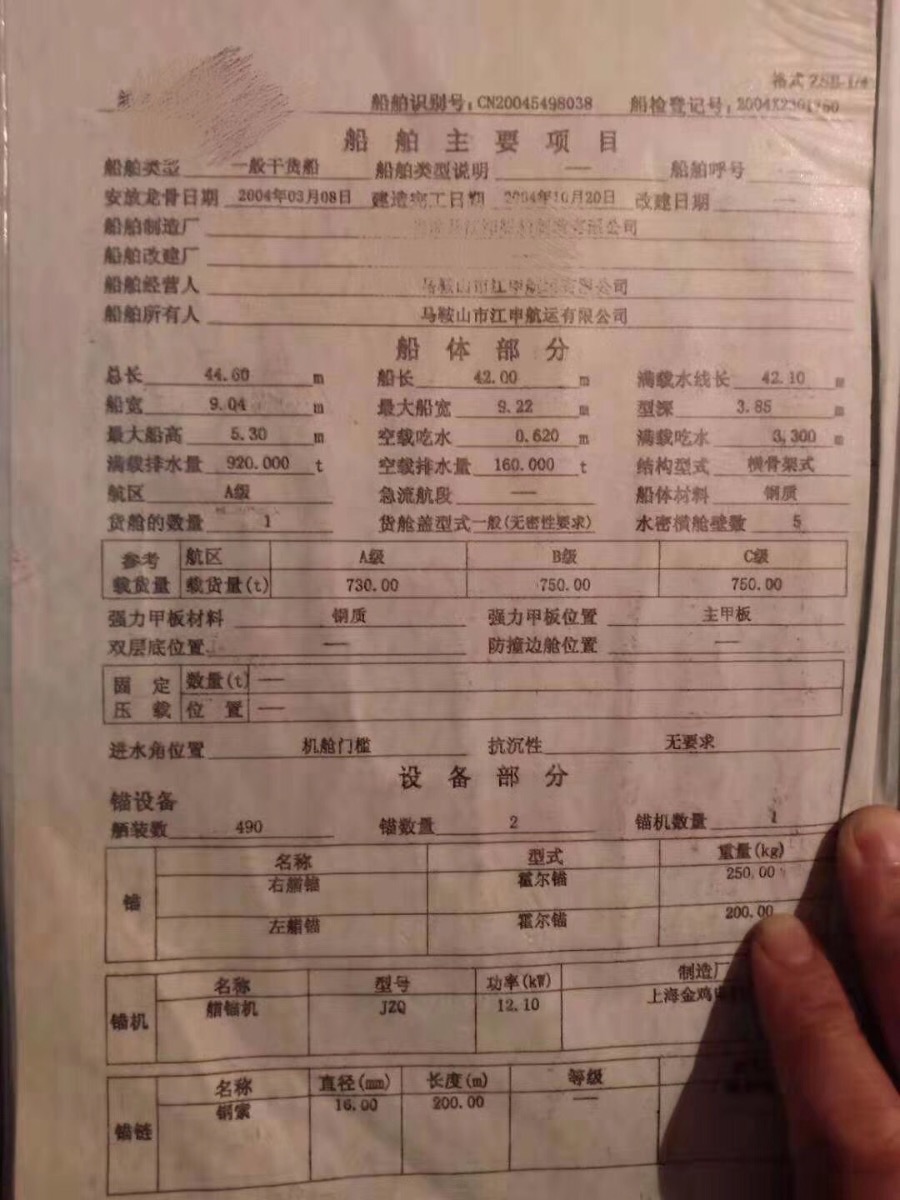 格式 ZSB-1/4
船舶识别号：CN20045498038 船检登记号：2004X2301760
船舶主要项目
船舶类型 一般干货船 船舶类型说明 — 船舶呼号
安放龙骨日期 2004年03月08日 建造完工日期 2004年10月20日 改建日期 —
船舶制造厂 公司
船舶改建厂 —
船舶经营人 马鞍山市江申航运有限公司
船舶所有人 马鞍山市江申航运有限公司
船体部分
总长 44.60 m 船长 42.00 m 满载水线长 42.10 m
船宽 9.04 m 最大船宽 9.22 m 型深 3.85 m
最大船高 5.30 m 空载吃水 0.620 m 满载吃水 3.300 m
满载排水量 920.000 t 空载排水量 160.000 t 结构型式 横骨架式
航区 A级 急流航段 — 船体材料 钢质
货舱的数量 1 货舱盖型式 一般(无密性要求) 水密横舱壁数 5
参考 航区 A级 B级 C级
载货量 载货量(t) 730.00 750.00 750.00
强力甲板材料 钢质 强力甲板位置 主甲板
双层底位置 — 防撞边舱位置 —
固定 数量(t) —
压载 位置 —
进水角位置 机舱门槛 抗沉性 无要求
设备部分
锚设备
舾装数 490 锚数量 2 锚机数量 1
锚 名称 型式 重量(kg)
右艏锚 霍尔锚 250.00
左艏锚 霍尔锚 200.00
锚机 名称 型号 功率(kW) 制造厂
艏锚机 JZQ 12.10 上海金鸡
锚链 名称 直径(mm) 长度(m) 等级
钢索 16.00 200.00 —